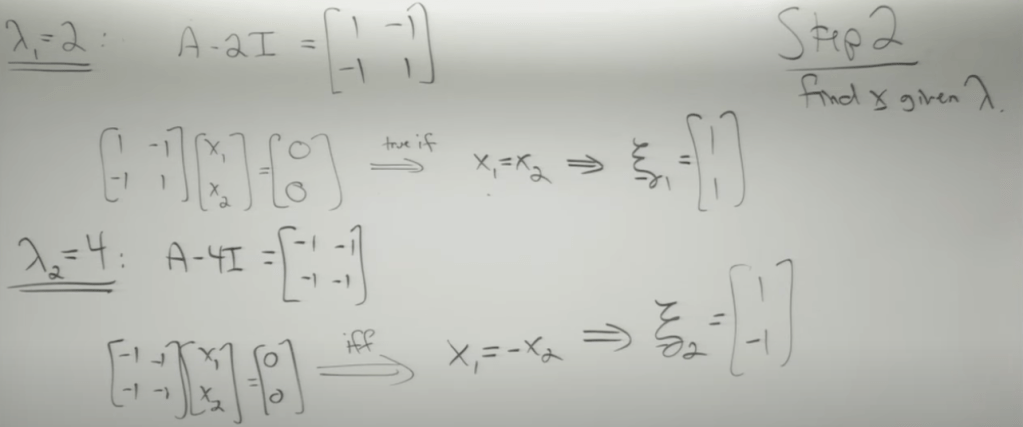 λ₁=2: A-2I = [1 -1; -1 1]
Step 2
find x given λ.
[1 -1; -1 1][x₁; x₂] = [0; 0] ⟹ true if x₁=x₂ ⟹ ξ₁ = [1; 1]
λ₂=4: A-4I = [-1 -1; -1 -1]
[-1 -1; -1 -1][x₁; x₂] = [0; 0] ⟹ iff x₁=-x₂ ⟹ ξ₂ = [1; -1]